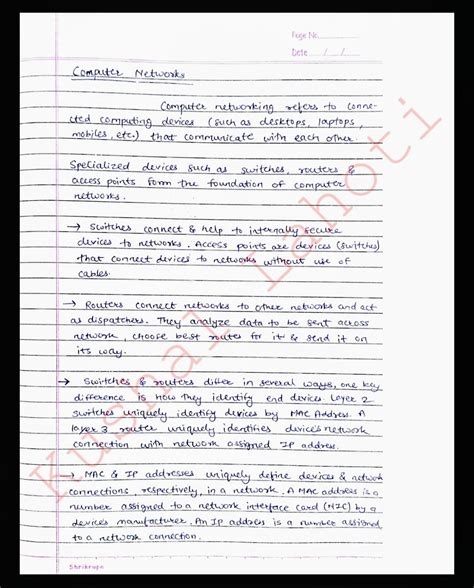 Page No.
Date / /
Computer Networks
Computer networking refers to conne-
cted computing devices (such as desktops, laptops,
mobiles, etc.) that communicate with each other.
Specialized devices such as switches, routers &
access points form the foundation of computer
networks.
→ Switches connect & help to internally secure
devices to networks. Access points are devices (switches)
that connect devices to networks without use of
cables.
→ Routers connect networks to other networks and act
as dispatchers. They analyze data to be sent across
network, choose best routes for it & send it on
its way.
→ Switches & routers differ in several ways, one key
difference is how they identify end devices. Layer 2
switches uniquely identify devices by MAC Address. A
layer 3 router uniquely identifies device's network
connection with network assigned IP address.
→ MAC & IP addresses uniquely define devices & network
connections, respectively, in a network. A MAC address is a
number assigned to a network interface card (NIC) by a
devices manufacturer. An IP address is a number assigned
to a network connection.
Shrikrupa
Kushal Lahoti